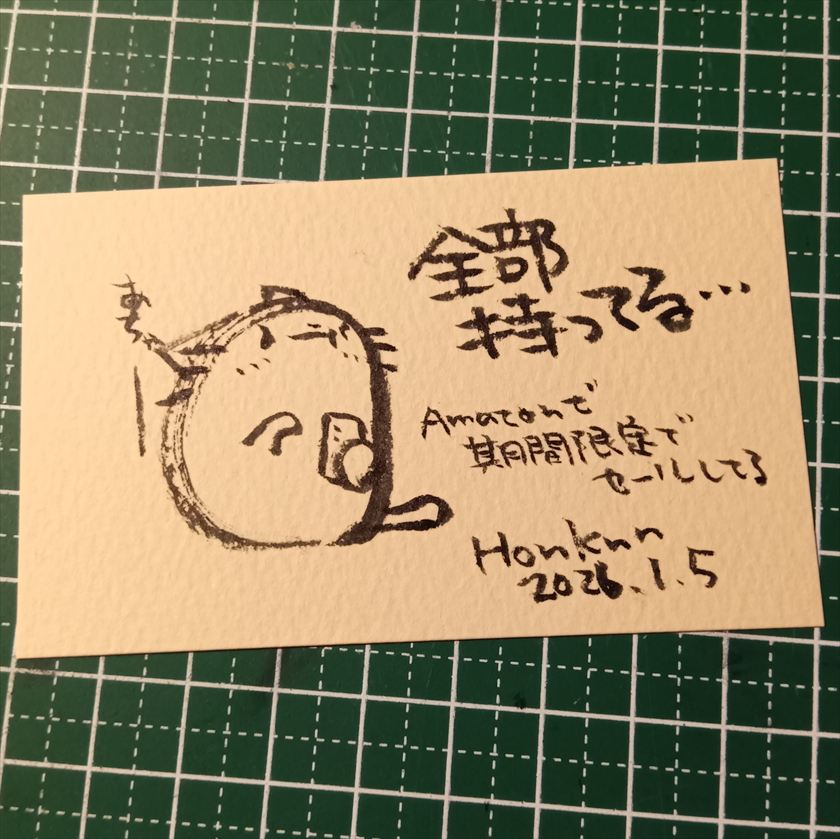 全部
持ってる…
Amazonで
期間限定で
セールしてる
Honkun
2026.1.5